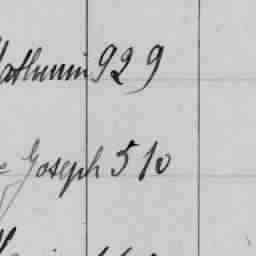 Mathurin 929
Joseph 510